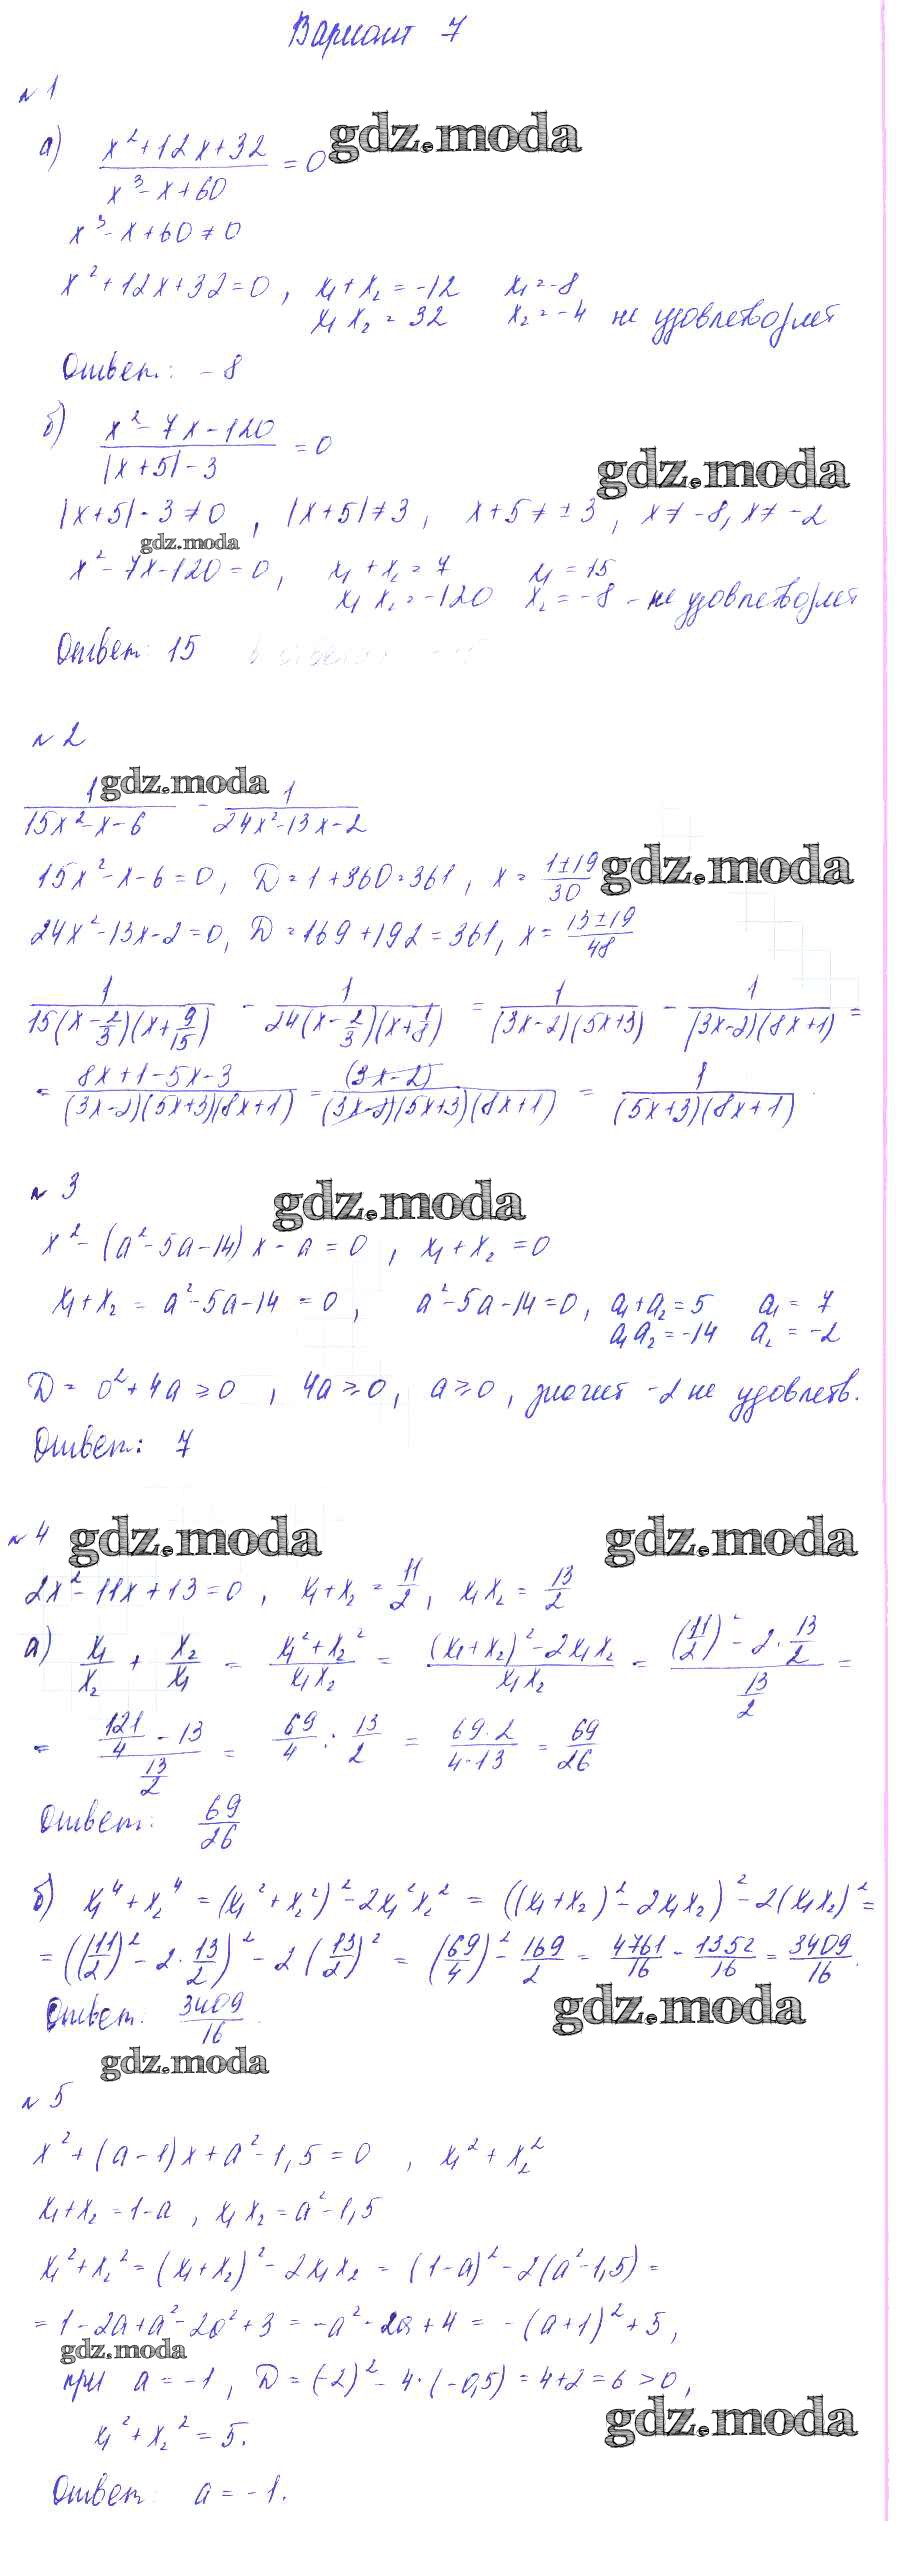 Вариант 7
№ 1
а) (x²+12x+32)/(x³-x+60) = 0 gdz.moda
x³-x+60≠0
x²+12x+32=0, x₁+x₂=-12 x₁=-8
x₁x₂=32 x₂=-4 не удовлетворяет
Ответ: -8
б) (x²-7x-120)/(|x+5|-3) = 0
gdz.moda
|x+5|-3≠0, |x+5|≠3, x+5≠±3, x≠-8, x≠-2
gdz.moda
x²-7x-120=0, x₁+x₂=7 x₁=15
x₁x₂=-120 x₂=-8 - не удовлетворяет
Ответ: 15
№ 2
gdz.moda
1/(15x²-x-6) - 1/(24x²-13x-2)
15x²-x-6=0, D=1+360=361, x=(1±19)/30 gdz.moda
24x²-13x-2=0, D=169+192=361, x=(13±19)/48
1/(15(x-2/3)(x+9/15)) - 1/(24(x-2/3)(x+1/8)) = 1/((3x-2)(5x+3)) - 1/((3x-2)(8x+1)) =
= (8x+1-5x-3)/((3x-2)(5x+3)(8x+1)) = (3x-2)/((3x-2)(5x+3)(8x+1)) = 1/((5x+3)(8x+1))
№ 3
gdz.moda
x²-(a²-5a-14)x-a=0, x₁+x₂=0
x₁+x₂=a²-5a-14=0, a²-5a-14=0, a₁+a₂=5 a₁=7
a₁a₂=-14 a₂=-2
D=0²+4a≥0, 4a≥0, a≥0, значит -2 не удовлетв.
Ответ: 7
№ 4 gdz.moda gdz.moda
2x²-11x+13=0, x₁+x₂=11/2, x₁x₂=13/2
а) x₁/x₂ + x₂/x₁ = (x₁²+x₂²)/(x₁x₂) = ((x₁+x₂)²-2x₁x₂)/(x₁x₂) = ((11/2)²-2·13/2)/(13/2) =
= (121/4-13)/(13/2) = 69/4 : 13/2 = (69·2)/(4·13) = 69/26
Ответ: 69/26
б) x₁⁴+x₂⁴=(x₁²+x₂²)²-2x₁²x₂²=((x₁+x₂)²-2x₁x₂)²-2(x₁x₂)²=
=((11/2)²-2·13/2)²-2(13/2)²=(69/4)²-169/2=4761/16-1352/16=3409/16.
Ответ: 3409/16.
gdz.moda
gdz.moda
№ 5
x²+(a-1)x+a²-1,5=0, x₁²+x₂²
x₁+x₂=1-a, x₁x₂=a²-1,5
x₁²+x₂²=(x₁+x₂)²-2x₁x₂=(1-a)²-2(a²-1,5)=
=1-2a+a²-2a²+3=-a²-2a+4=-(a+1)²+5,
gdz.moda
при a=-1, D=(-2)²-4·(-0,5)=4+2=6>0,
gdz.moda
x₁²+x₂²=5.
Ответ: a=-1.